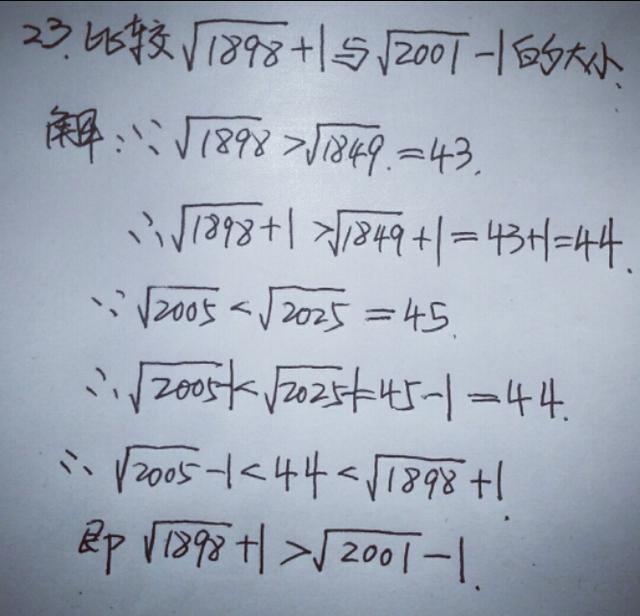 23. 比较√1898+1与√2001-1的大小.
解:∵√1898>√1849.=43.
∴√1898+1>√1849+1=43+1=44.
∵√2005<√2025=45.
∴√2005-1<√2025-1=45-1=44.
∴√2005-1<44<√1898+1.
即√1898+1>√2001-1.